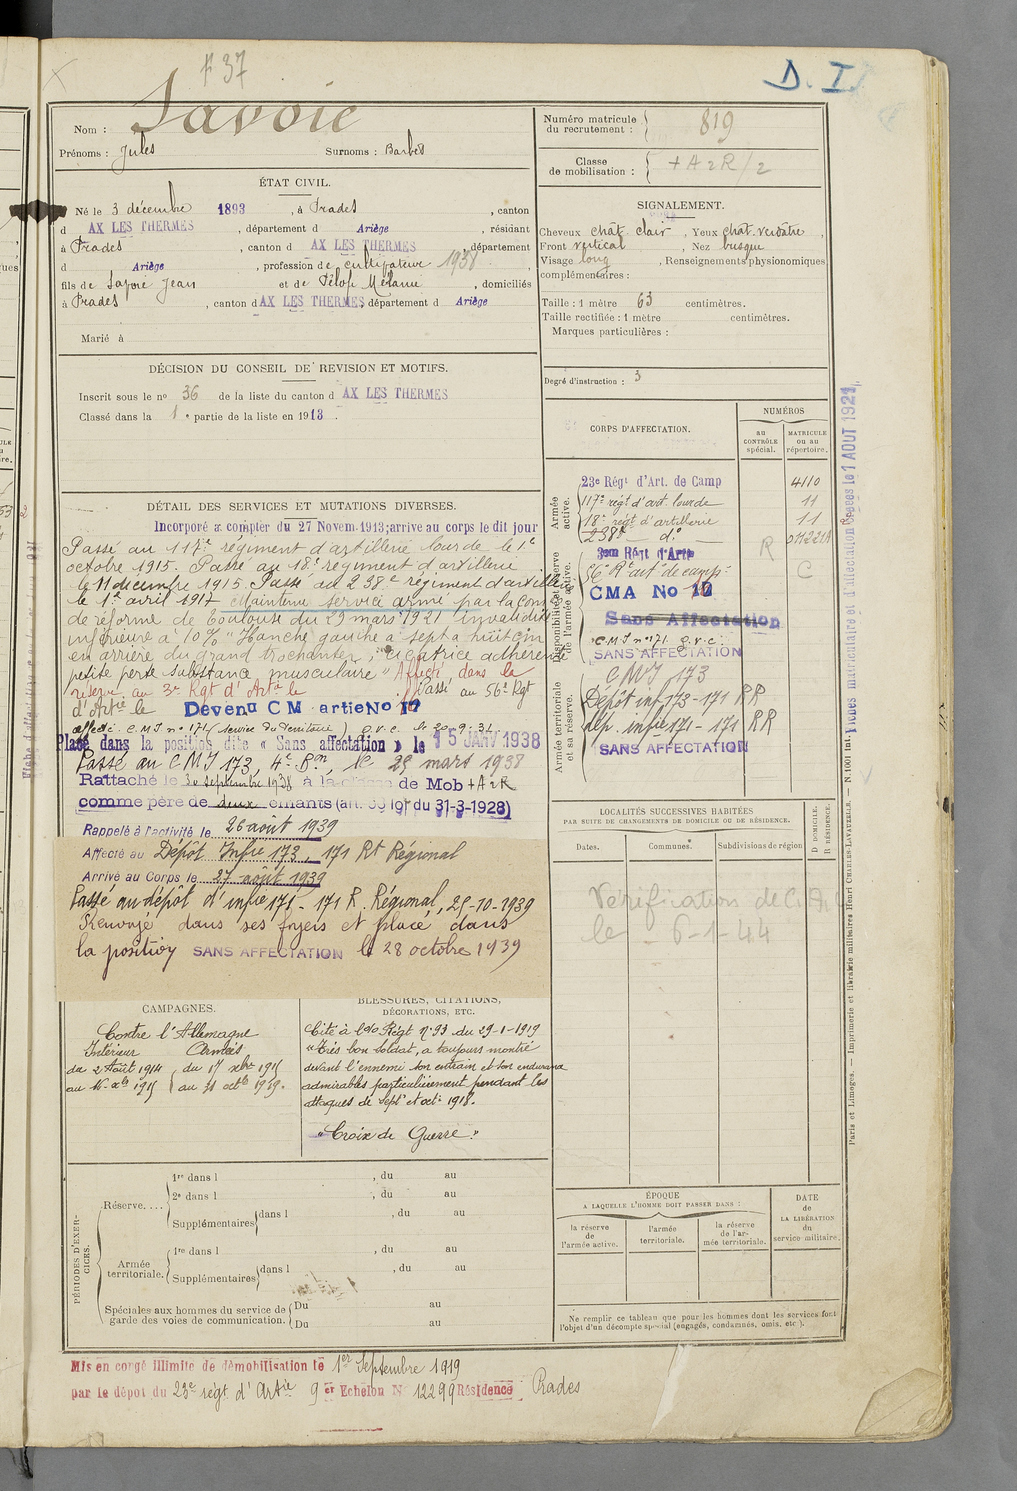 F 37
D. I.
Nom : Savoie
Prénoms : Jules Surnoms : Barbes
Numéro matricule du recrutement : 819
Classe de mobilisation : + A 2 R/2
ÉTAT CIVIL.
Né le 3 décembre 1893, à Prades, canton
d AX LES THERMES, département d Ariège, résidant
à Prades, canton d AX LES THERMES, département
d Ariège, profession de cultivateur 1938,
fils de Savoie Jean et de Pélofi Mélanie, domiciliés
à Prades, canton d AX LES THERMES, département d Ariège
Marié à
SIGNALEMENT.
Cheveux chât. clair, Yeux chât. verdâtre,
Front vertical, Nez busqué
Visage long, Renseignements physionomiques
complémentaires :
Taille : 1 mètre 63 centimètres.
Taille rectifiée : 1 mètre centimètres.
Marques particulières :
Degré d'instruction : 3
DÉCISION DU CONSEIL DE REVISION ET MOTIFS.
Inscrit sous le no 36 de la liste du canton d AX LES THERMES
Classé dans la 1e partie de la liste en 1913.
DÉTAIL DES SERVICES ET MUTATIONS DIVERSES.
Incorporé à compter du 27 Novem. 1913; arrivé au corps le dit jour
Passé au 117e régiment d'artillerie lourde le 1er
octobre 1915. Passé au 18e régiment d'artillerie
le 11 décembre 1915. Passé au 238e régiment d'artillerie
le 1er avril 1917 Maintenu service armé par la Com
de réforme de Toulouse du 29 mars 1921 invalidité
inférieure à 10% "Hanche gauche à sept à huit cm
en arrière du grand trochanter, cicatrice adhérente
petite perte substance musculaire" Affecté dans la
réserve au 3e Rgt d'Artie le Passé au 56e Rgt
d'Artie le Devenu C M artie No 17
affecté C.M.I. no 171 (service du Territoire) g.v.c. le 20-9-31
Placé dans la position dite « Sans affectation » le 15 JANV 1938
Passé au CMI 173, 4e Bon, le 25 mars 1938
Rattaché le 30 septembre 1938 à la classe de Mob + A 2 R
comme père de deux enfants (art. 58 du 31-3-1928)
Rappelé à l'activité le 26 août 1939
Affecté au Dépôt Infie 173, 171 Rt Régional
Arrivé au Corps le 27 août 1939
Passé au dépôt d'infie 171 - 171 R. Régional, 25-10-1939
Renvoyé dans ses foyers et placé dans
la position SANS AFFECTATION le 28 octobre 1939
CORPS D'AFFECTATION.
NUMÉROS
au CONTRÔLE spécial.
MATRICULE ou au répertoire.
Armée active.
23e Régt d'Art. de Camp 4110
117e régt d'art. lourde 11
18e régt d'artillerie 11
238e do
Disponibilité et réserve de l'armée active.
3eme Régt d'Artie R
56e Rt art. de camp. C
CMA No 12
Sans Affectation
C.M.I no 171 g.v.c.
SANS AFFECTATION
Armée territoriale et sa réserve.
CMI 173
Dépôt inf 173 - 171 RR
dép. infie 171 - 171 RR
SANS AFFECTATION
Fiches matriculaire et d'affectation créées le 1 AOUT 1921
LOCALITÉS SUCCESSIVES HABITÉES
PAR SUITE DE CHANGEMENTS DE DOMICILE OU DE RÉSIDENCE.
D DOMICILE. R RÉSIDENCE.
Dates. Communes. Subdivisions de région
Vérification de
le - 6-1-44
CAMPAGNES.
Contre l'Allemagne
Intérieur Armées
du 2 Août 1914 du 17 xbre 1915
au 16 xbre 1915 au 31 octb 1919.
BLESSURES, CITATIONS,
DÉCORATIONS, ETC.
Cité à l'do Régt No 93 du 29-1-1919
"Très bon soldat, a toujours montré
devant l'ennemi son entrain et son endurance
admirables particulièrement pendant les
attaques de Septe et octe 1918.
"Croix de Guerre"
PÉRIODES D'EXERCICES.
Réserve....
1re dans l , du au
2e dans l , du au
Supplémentaires dans l , du au
Armée territoriale.
1re dans l , du au
Supplémentaires dans l , du au
Spéciales aux hommes du service de garde des voies de communication.
Du au
Du au
ÉPOQUE
A LAQUELLE L'HOMME DOIT PASSER DANS :
la réserve de l'armée active.
l'armée territoriale.
la réserve de l'armée territoriale.
DATE de LA LIBÉRATION du service militaire.
Ne remplir ce tableau que pour les hommes dont les services font
l'objet d'un décompte spécial (engagés, condamnés, omis, etc.).
Paris et Limoges. — Imprimerie et librairie militaires Henri CHARLES-LAVAUZELLE. — N. 1001 int.
Mis en congé illimité de démobilisation le 1er Septembre 1919
par le dépôt du 23e régt d'Artie 9e Echelon N 12299 Résidence Prades